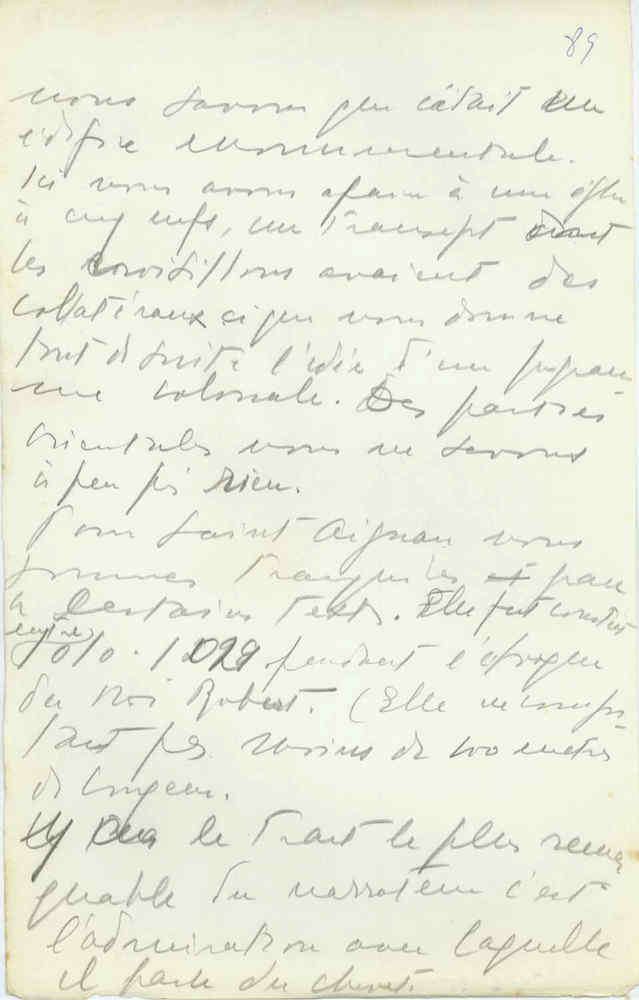 89
nous savons que c'était un
édifice monumentale.
Ici nous avons afaire à une église
à cinq nefs, un transept dont
les croisillons avaient des
collatéraux ce que nous donne
tout de suite l'idée d'un
colossale. Des parties
orientales nous ne savons
à peu près rien.
Pour Saint Aignan nous
sommes tranquiles par
certains texts. Elle fut construit
entre
1010 · 1029 pendant l'époque
du Roi Robert. (Elle ne
pas moins de 100 metres
de longeur.
Il y a le trait le plus remar
quable du narrateur c'est
l'admiration avec laquelle
il parle du chevet.